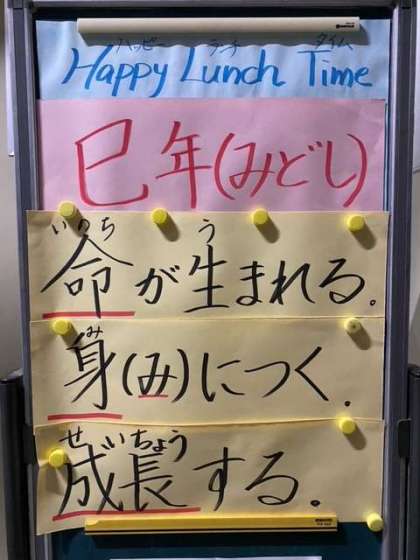 ハッピー ランチ タイム
Happy Lunch Time
巳年(みどし)
いのち う
命が生まれる.
み
身(み)につく.
せいちょう
成長する.